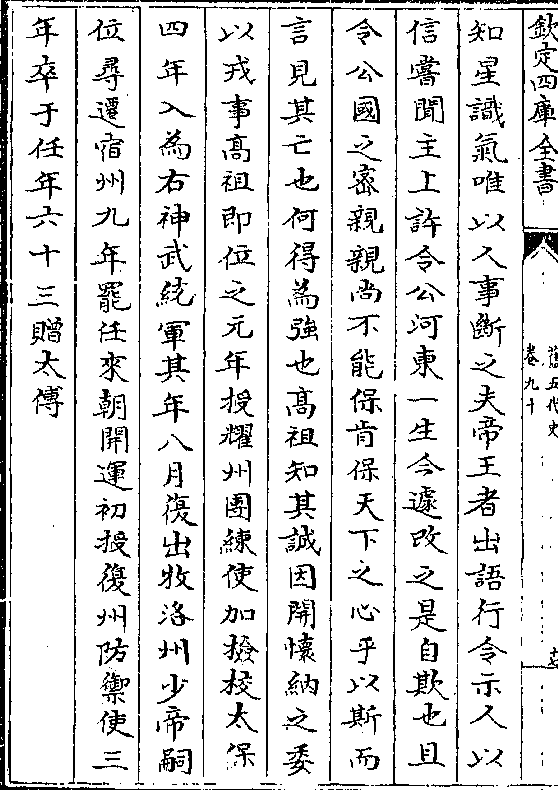 欽定四庫全書
舊五代史
卷九十
知星識氣唯以人事斷之夫帝王者出語行令示人以
信嘗聞主上許令公河東一生今遽改之是自欺也且
令公國之密親親尚不能保肯保天下之心乎以斯而
言見其亡也何得為強也髙祖知其誠因開懷納之委
以戎事髙祖即位之元年授耀州團練使加撿校太保
四年入為右神武統軍其年八月復出牧洛州少帝嗣
位尋遷宿州九年罷任來朝開運初授復州防禦使三
年卒于任年六十三贈太傅